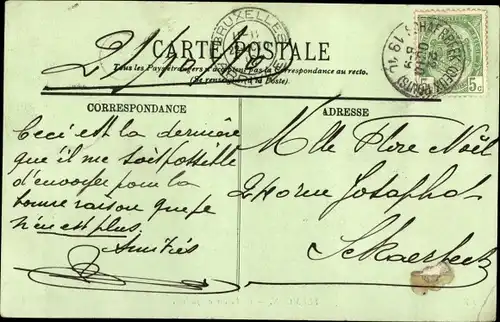 BRUXELLES
CARTE POSTALE
Tous les Pays étrangers n'acceptent pas la Correspondance au recto.
(Se renseigner à la Poste).
5 5c
CORRESPONDANCE
ADRESSE
Ceci est la dernière
que il me soit possible
d'envoyer pour la
bonne raison que je
n'en est plus.
Amitiés
Mlle Flore Noël
240 rue Josaphat
Sckaerbeek